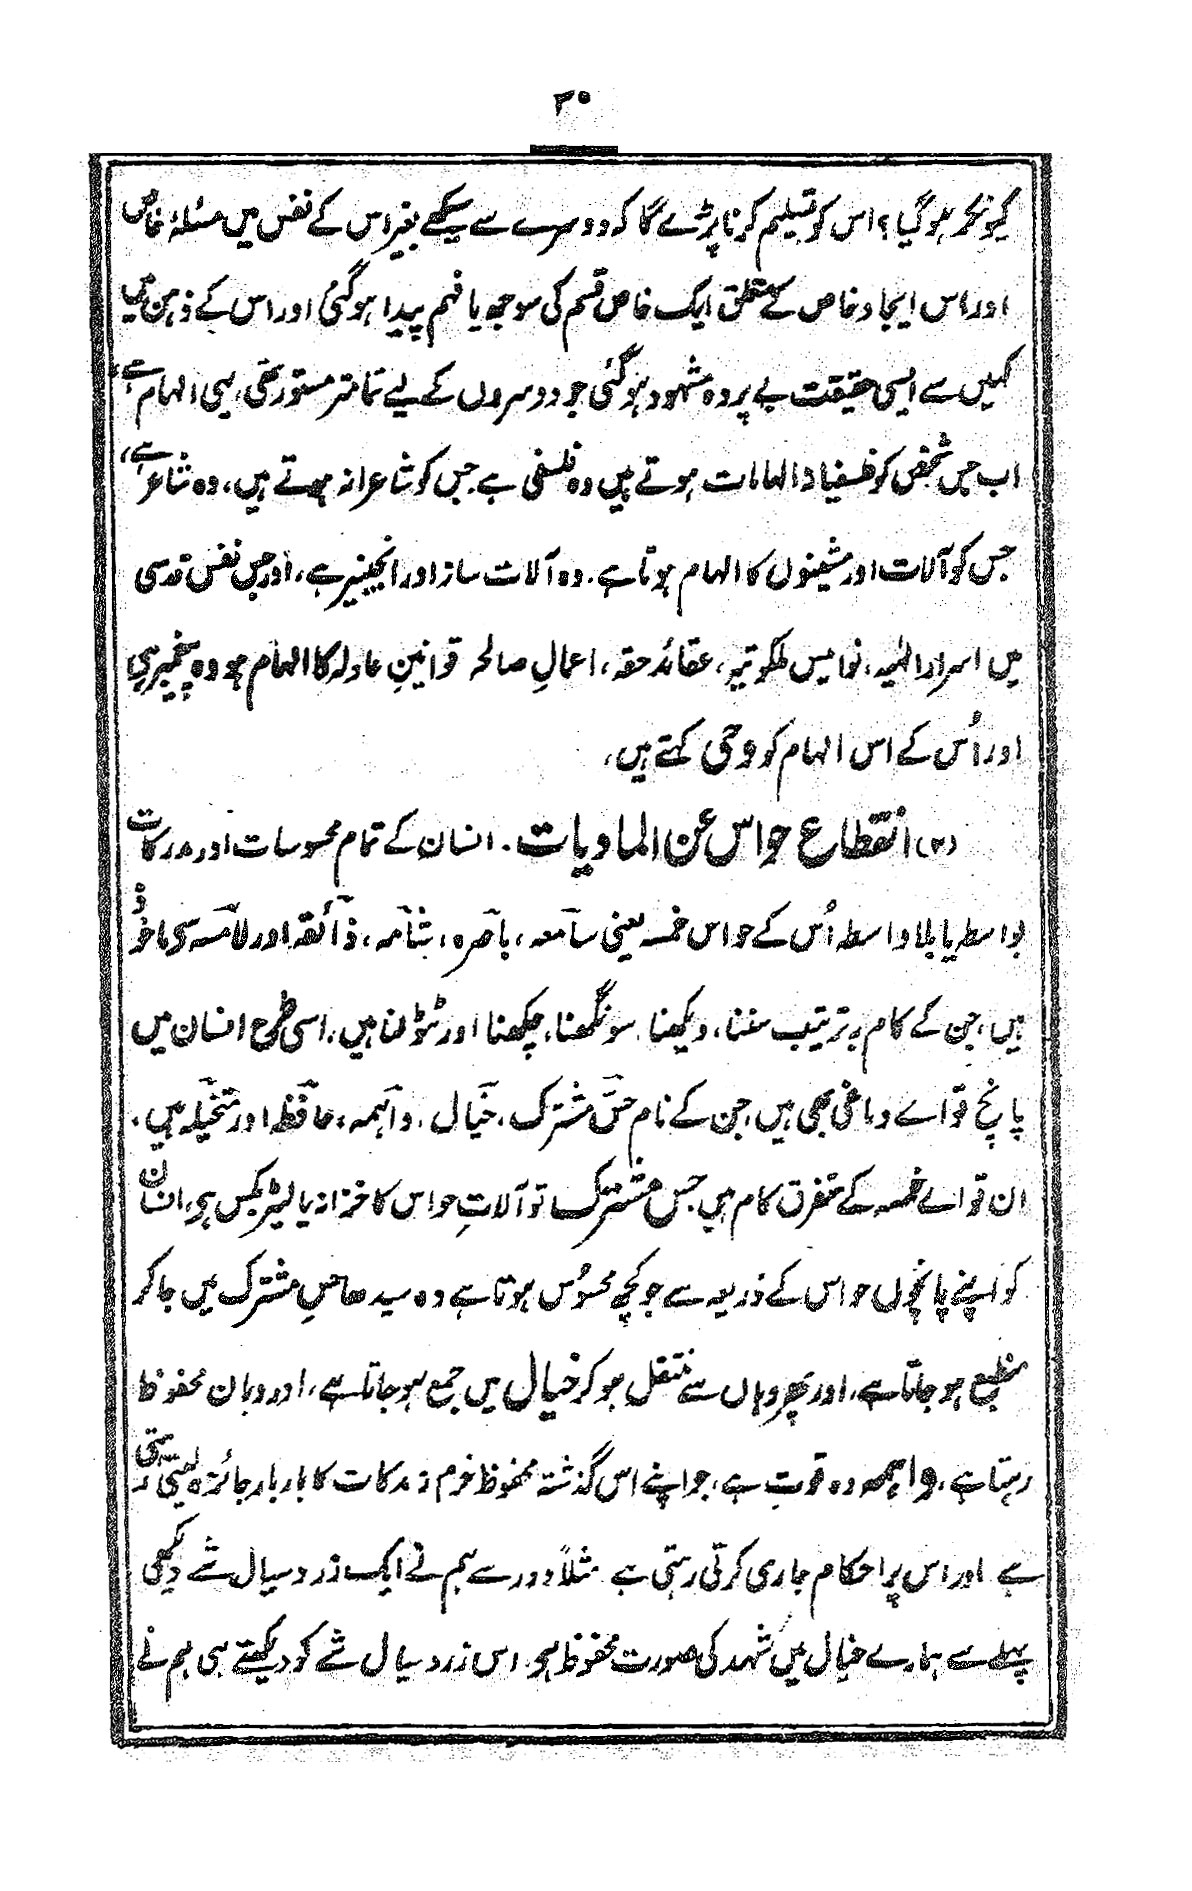 ۳۰
کیونکر ہوگیا؟ اس کو تسلیم کرنا پڑے گا کہ دوسرے سے سیکھے بغیر اس کے نفس میں مسئلۂ خاص
اور اس ایجاد خاص کے متعلق ایک خاص قسم کی سوجھ یا فہم پیدا ہوگئی اور اس کے ذہن میں
کہیں سے ایسی حقیقت بے پردہ مشہود ہوگئی جو دوسروں کے لیے تمامتر مستور تھی، یہی الہام ہے،
اب جس شخص کو فلسفیانہ الہامات ہوتے ہیں وہ فلسفی ہے جس کو شاعرانہ ہوتے ہیں، وہ شاعر ہے،
جس کو آلات اور مشینوں کا الہام ہوتا ہے. وہ آلات ساز اور انجینیر ہے، اور جس نفس قدسی
میں اسرار الٰہیہ، نوامیس ملکوتیہ، عقائد حقہ، اعمالِ صالحہ قوانینِ عادلہ کا الہام ہو وہ پیغمبر ہی
اور اُس کے اس الہام کو وحی کہتے ہیں،
(۲) انقطاع حواس عن المادیات. انسان کے تمام محسوسات اور مدرکات
بواسطہ یا بلا واسطہ اُس کے حواس خمسہ یعنی سامعہ، باصرہ، شامہ، ذائقہ اور لامسہ سے ماخوذ
ہیں، جن کے کام بہ ترتیب سننا، دیکھنا سونگھنا، چکھنا اور ٹٹولنا ہیں، اسی طرح انسان میں
پانچ قواے دماغی بھی ہیں، جن کے نام حس مشترک، خیال، واہمہ، حافظہ اور متخیلہ ہیں،
ان قواے خمسہ کے متفرق کام ہیں، حس مشترک تو آلاتِ حواس کا خزانہ یا لیٹر بکس ہی، انسان
کو اپنے پانچوں حواس کے ذریعہ سے جو کچھ محسوُس ہوتا ہے وہ سیدھا حسِ مشترک میں جاکر
منطبع ہوجاتا ہے، اور پھر وہاں سے منتقل ہوکر خیال میں جمع ہوجاتا ہے، اور وہان محفوظ
رہتا ہے، واہمہ وہ قوت ہے، جو اپنے اس گذشتہ محفوظ خرم مدرکات کا بار بار جائزہ لیتی رہتی
ہے اور اس پر احکام جاری کرتی رہتی ہے مثلاً دور سے ہم نے ایک زرد سیال شے دیکھی
پہلے سے ہمارے خیال میں شہد کی صورت محفوظ ہی، اس زرد سیال شے کو دیکھتے ہی ہم نے